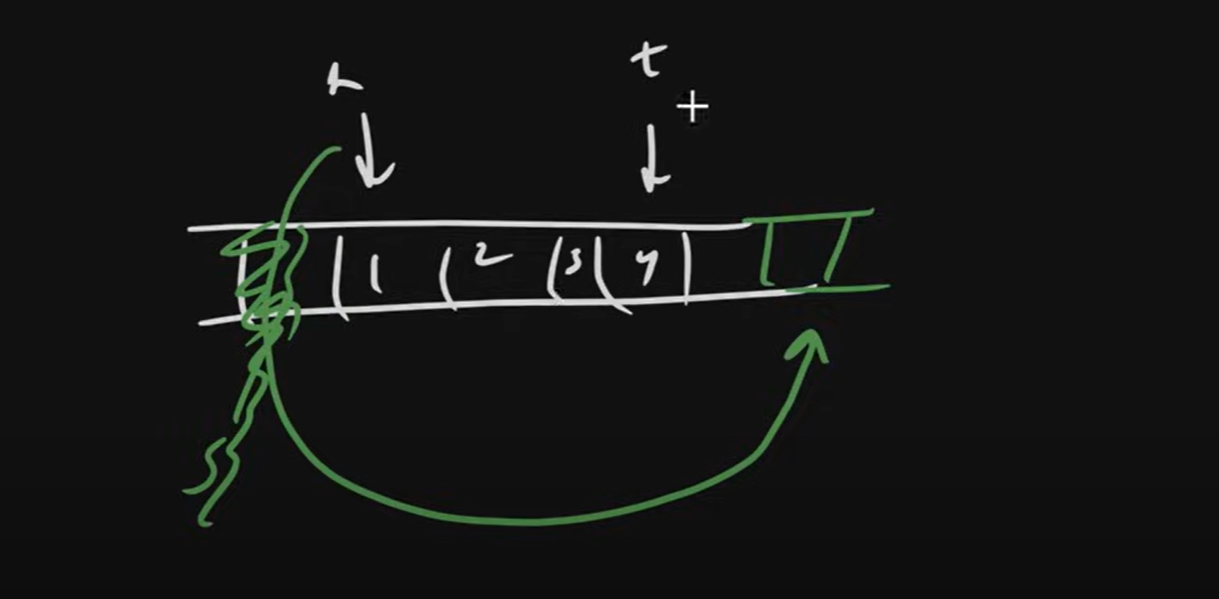 h t
1 2 3 4